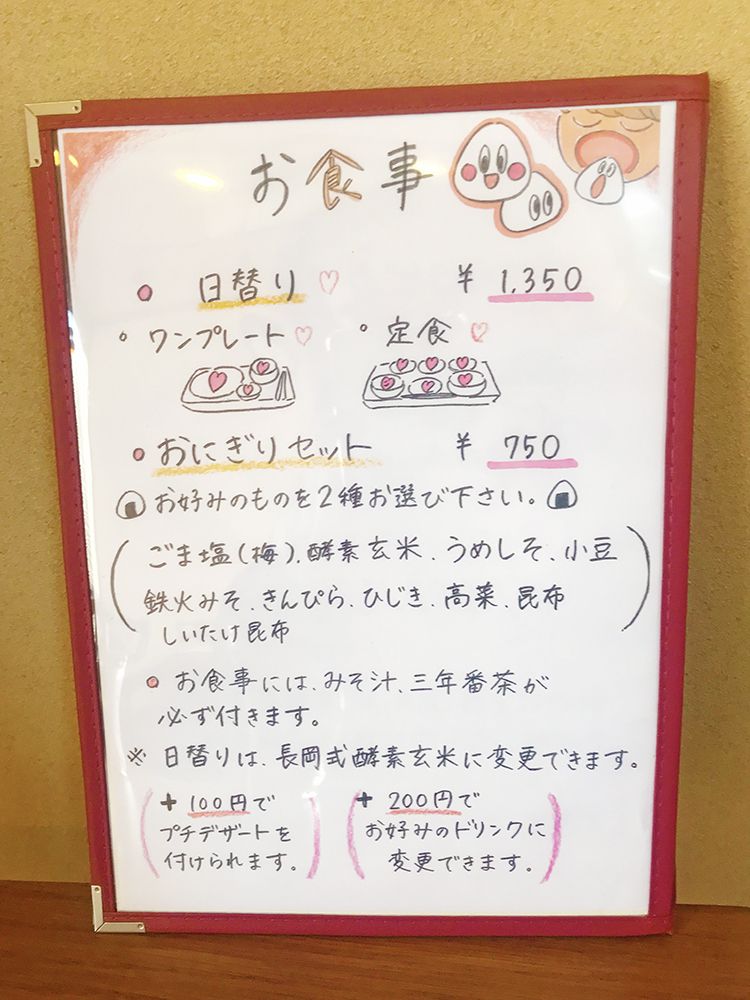 お食事
日替り ¥ 1,350
ワンプレート 定食
おにぎりセット ¥ 750
お好みのものを2種お選び下さい。
(ごま塩(梅)、酵素玄米、うめしそ、小豆
鉄火みそ、きんぴら、ひじき、高菜、昆布
しいたけ昆布)
お食事には、みそ汁、三年番茶が
必ず付きます。
※ 日替りは、長岡式酵素玄米に変更できます。
(+100円で
プチデザートを
付けられます。)
(+200円で
お好みのドリンクに
変更できます。)